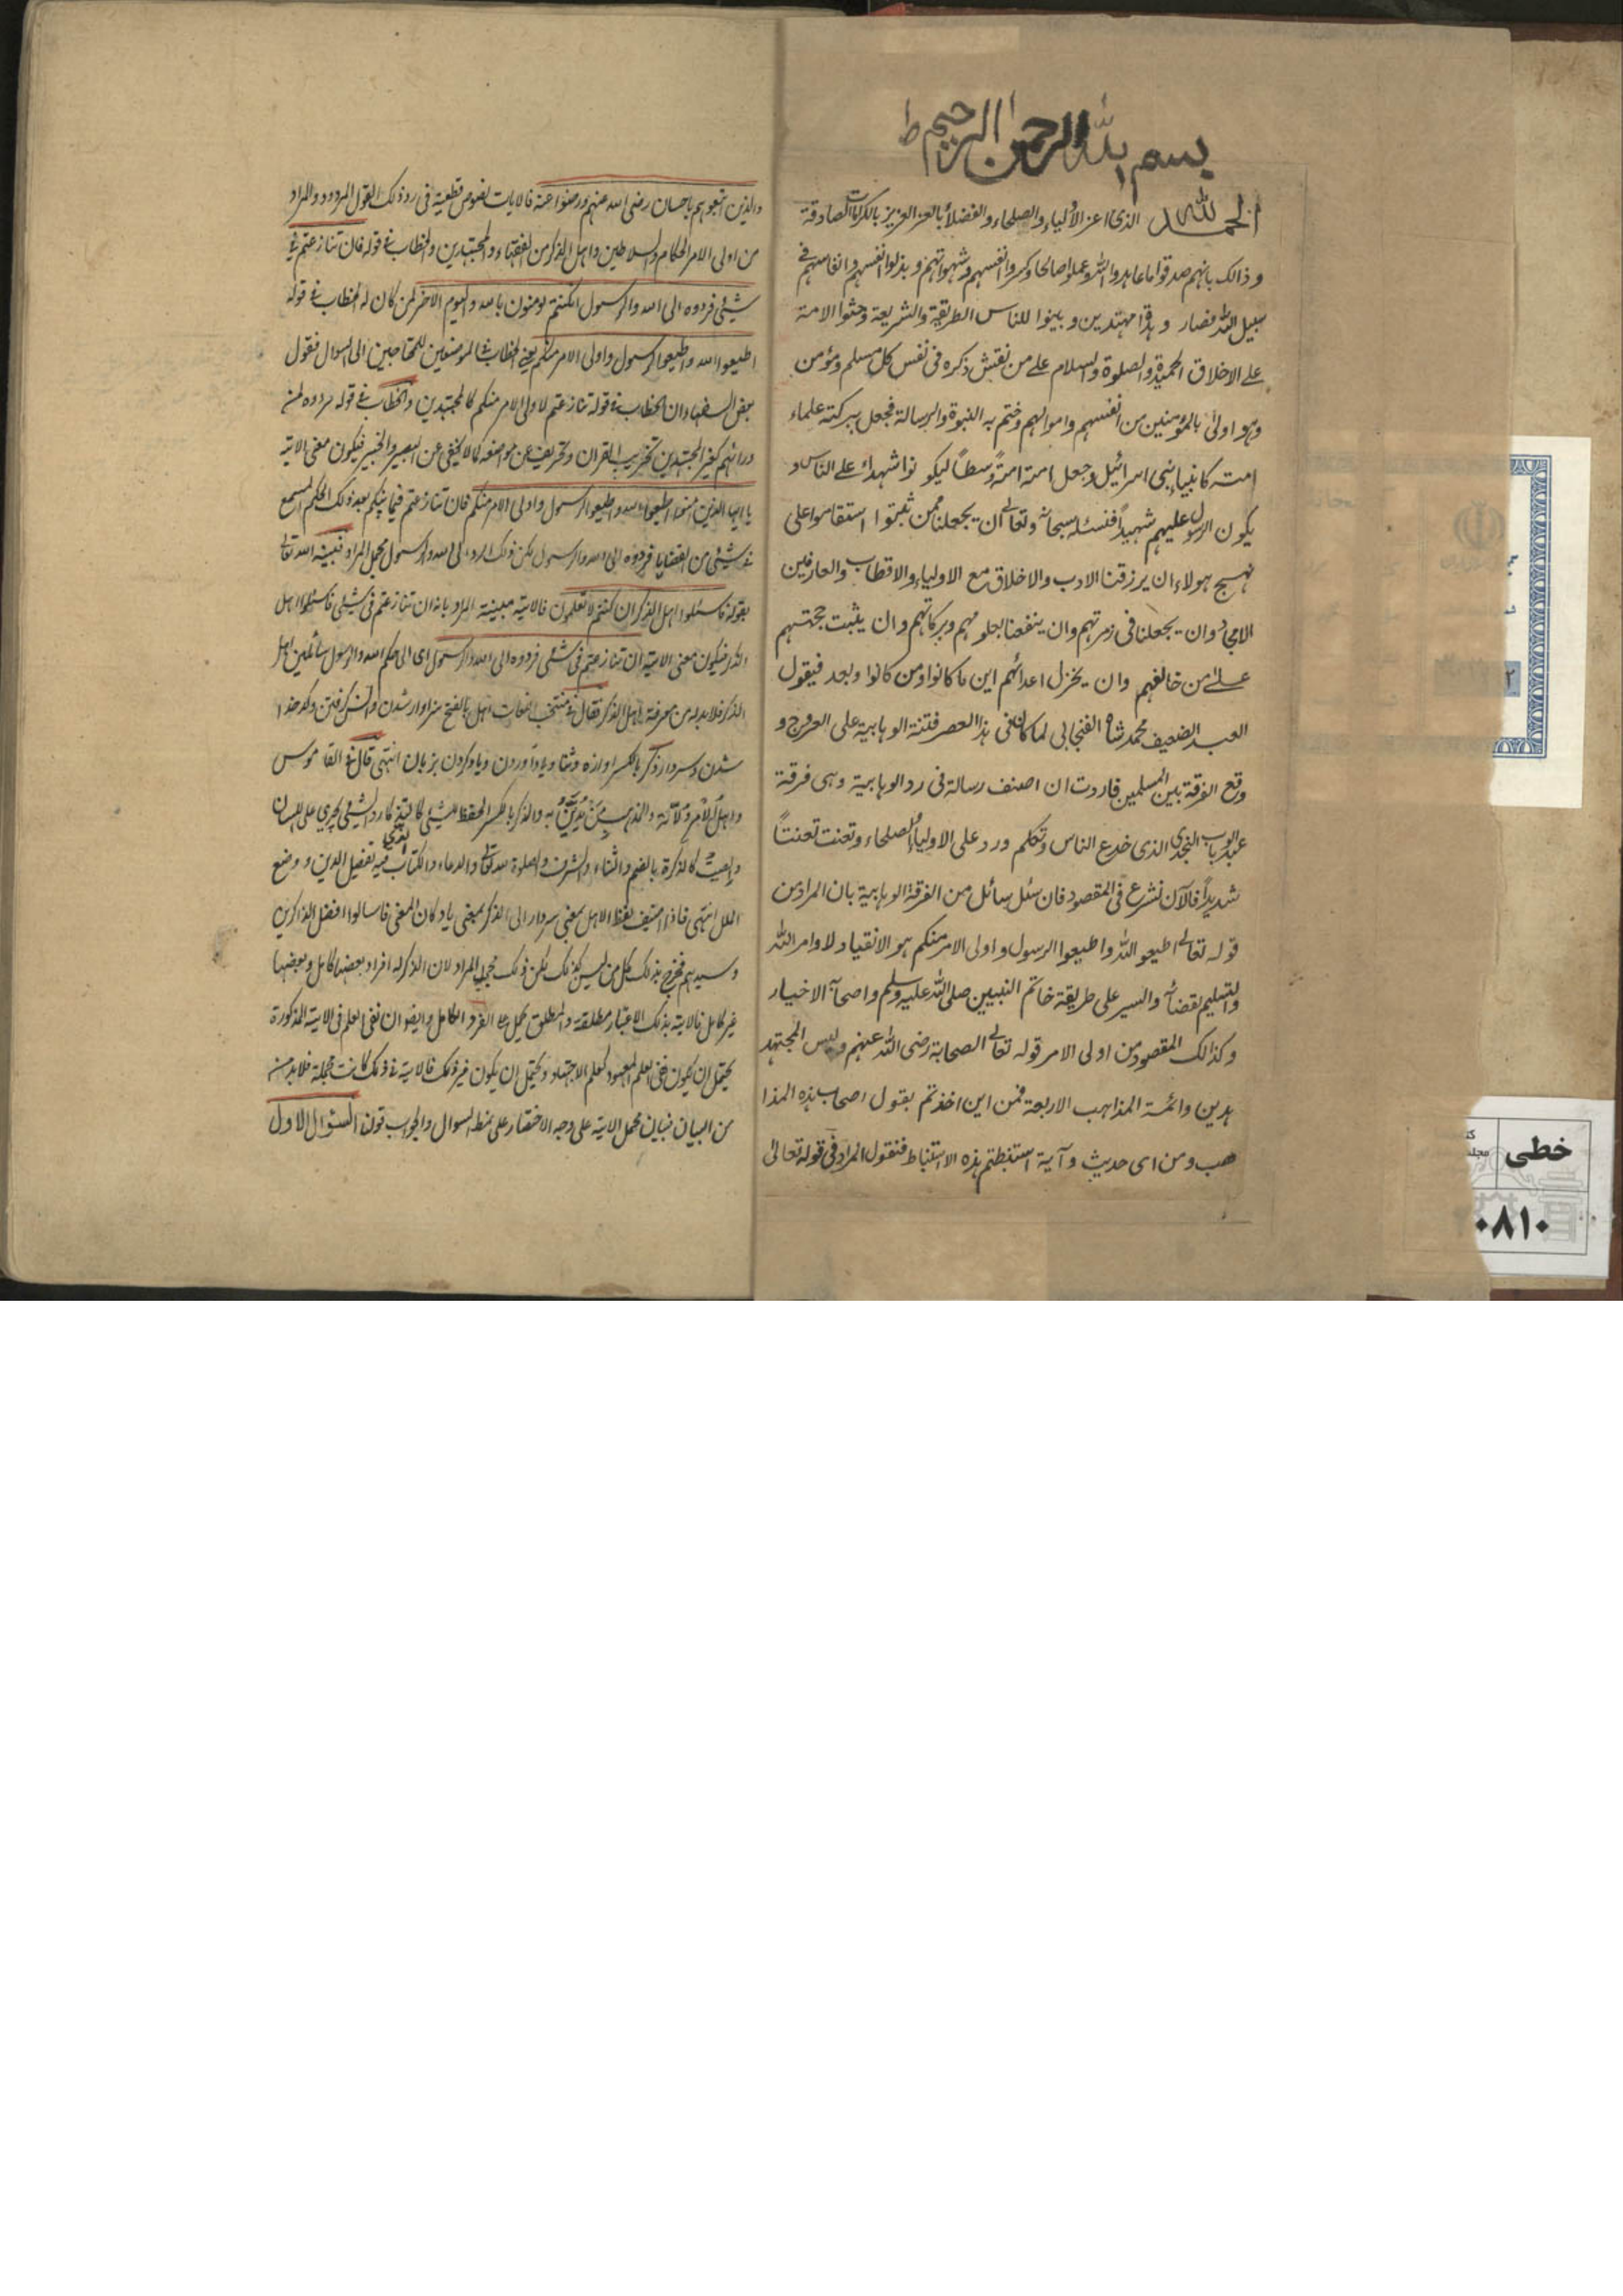 بسم الله الرحمن الرحيم ط
الحمد لله الذى اعز الاولياء والصلحاء والفضلاء بالعز العزيز بالكرامات الصادقة
وذالك بانهم صدقوا ما عاهدوا الله وعملوا صالحا وكسروا انفسهم وشهواتهم وبذلوا انفسهم وانفاسهم فى
سبيل الله فصاروا مهتدين وبينوا للناس الطريقة والشريعة وحثوا الامة
على الاخلاق الحميدة والصلوة والسلام على من نقش ذكره فى نفس كل مسلم ومؤمن
وهو اولى بالمؤمنين من انفسهم واموالهم وختم به النبوة والرسالة فجعل ببركته علماء
امته كانبياء بنى اسرائيل وجعل امته امةً وسطاً ليكونوا شهداء على الناس و
يكون الرسول عليهم شهيداً فنسئله سبحانه وتعالى ان يجعلنا ممن ثبتوا استقاموا على
نهج هولاء ان يرزقنا الادب والاخلاق مع الاولياء والاقطاب والعارفين
الامجاد وان يجعلنا فى زمرتهم وان ينفعنا بعلومهم وبركاتهم وان يثبت حجتهم
على من خالفهم وان يخزل اعدائهم اين ما كانوا ومن كانوا وبعد فيقول
العبد الضعيف محمد شاه الفنجابى لما كان فى هذا العصر فتنة الوهابية على العروج و
وقع الفرقة بين المسلمين فاردت ان اصنف رسالة فى رد الوهابية وهى فرقة
عبد الوهاب النجدى الذى خدع الناس وتكلم ورد على الاولياء والصلحاء وتعنت تعنتاً
شديداً فالآن نشرع فى المقصود فان سئل سائل من الفرقة الوهابية بان المراد من
قوله تعالى اطيعو الله واطيعوا الرسول واولى الامر منكم هو الانقياد لاوامر الله
والتسليم لقضائه والسير على طريقة خاتم النبيين صلى الله عليه وسلم واصحابه الاخيار
وكذالك المقصود من اولى الامر قوله تعالى الصحابة رضى الله عنهم وليس المجتهد
هدين وائمة المذاهب الاربعة فمن اين اخذتم بقول اصحاب هذه المذا
هب ومن اى حديث وآية استنبطتم هذه الاستنباط فنقول المراد فى قوله تعالى
والذين اتبعوهم باحسان رضى الله عنهم ورضوا عنه فالايات نصوص قطعية فى رد ذلك القول المردود والمراد
من اولى الامر الحكام والسلاطين واهل الذكر من الفقهاء والمجتهدين والخطاب فى قوله فان تنازعتم فى
شيئ فردوه الى الله والرسول ان كنتم تومنون بالله واليوم الاخر لمن كان له الخطاب فى قوله
اطيعوا الله واطيعوا الرسول واولى الامر منكم يعنى الخطاب للمومنين المحتاجين الى السوال فقول
بعض السفهاء ان الخطاب فى قوله تنازعتم لاولى الامر منكم كالمجتهدين والخطاب فى قوله
كغير المجتهدين تخريب القران وتحريف عن مواضعه كما لا يخفى عن البصير والخبير فيكون معنى الاية
يا ايها الذين امنوا اطيعوا الله واطيعوا الرسول واولى الامر منكم فان تنازعتم فيما بينكم بعد ذلك الحكم
فى شيئ من القضايا فردوه الى الله والرسول لكن ذلك الرد الى الله والرسول مجمل المراد فبينه الله تعالى
بقوله فاسئلوا اهل الذكر ان كنتم لا تعلمون فالاية مبينة المراد بانه ان تنازعتم فى شيئ فاسئلوا اهل
الذكر فيكون معنى الاية ان تنازعتم فى شيئ فردوه الى الله والرسول اى الى حكم الله والرسول سائلين اهل
الذكر فلا بد له من معرفة اهل الذكر فقال فى منتخب اللغات اهل بالفتح سزاوار شدن
شدن وسردار ذكر بالكسر اوازه وثنا وياد آوردن وياد كردن بزبان انتهى قال فى القاموس
واهل الامر ولاته والمذهب من يدين به والذكر بالكسر الحفظ للشيئ كالتذكار والشيئ يجرى على اللسان
والصيت كالذكرة بالضم والثناء والشرف والصلوة لله تعالى والدعاء والكتاب فيه تفصيل الدين ووضع
الملل انتهى فاذا اضيف لفظ الاهل بمعنى سردار الى الذكر بمعنى ياد كان المعنى فاسالوا افضل الذاكرين
وسيدهم فخرج بذلك كل من ليس كذلك لكن ذلك مجمل المراد لان الذكر له افراد بعضها كامل وبعضها
غير كامل فالاية بذلك الاعتبار مطلقة والمطلق يحمل على الفرد الكامل وايضا ان نفى العلم فى الاية المذكورة
يحتمل ان يكون نفى العلم المعهود كعلم الاجتهاد ويحتمل ان يكون غير ذلك فالاية فى ذلك كانت مجملة فلا بد
من البيان فبيان مجمل الاية على وجه الاختصار على نمط السوال والجواب قولنا السئوال الاول
خطى
۰۸۱۰